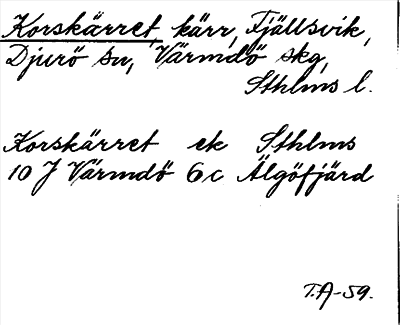 Korskärret, kärr, Fjällsvik,
Djurö sn, Värmdö skg,
Sthlms l.
Korskärret ek Sthlms
10 J Värmdö 6c Älgöfjärd
T.A-59.